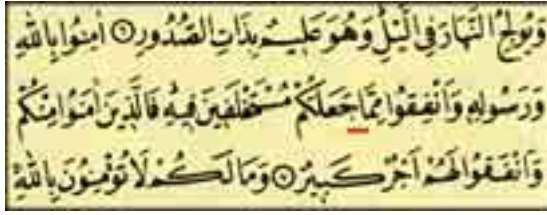 وَيُولِجُ النَّهَارَ فِي الَّيْلِ وَهُوَ عَلِيمٌ بِذَاتِ الصُّدُورِ ۝ اٰمِنُوا بِاللّٰهِ
وَرَسُولِهِ وَاَنْفِقُوا مِمَّا جَعَلَكُمْ مُسْتَخْلَفِينَ فِيهِ فَالَّذِينَ اٰمَنُوا مِنْكُمْ
وَاَنْفَقُوا لَهُمْ اَجْرٌ كَبِيرٌ ۝ وَمَا لَكُمْ لَا تُؤْمِنُونَ بِاللّٰهِ